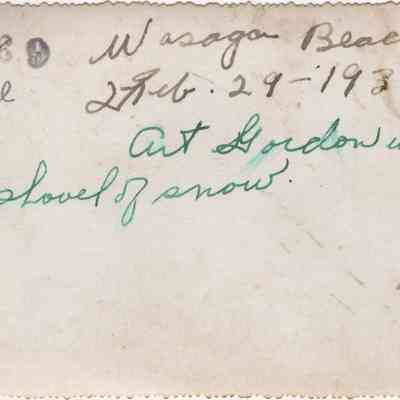 8 Wasaga Beac
e Feb. 29-193
Art Gordon w
shovel of snow.